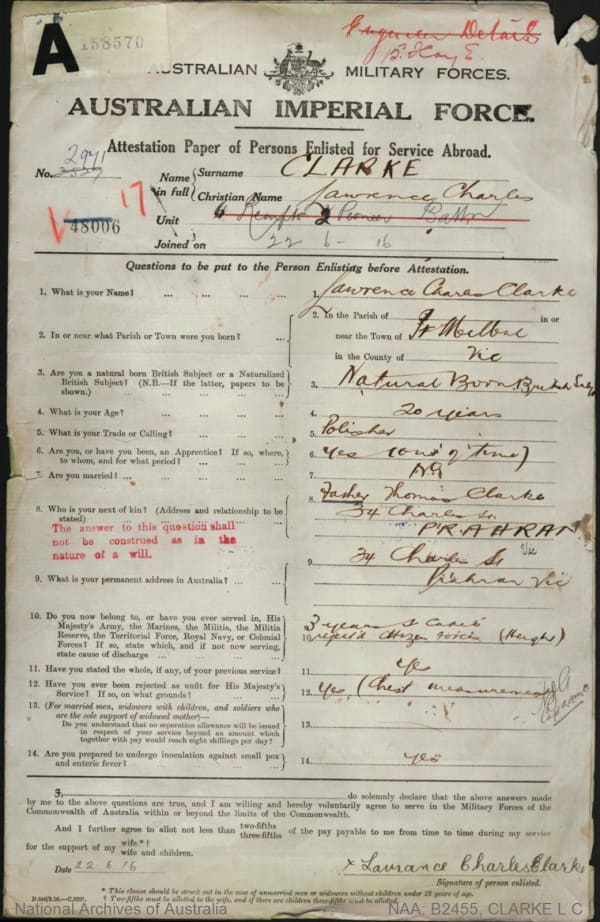 A
158570
Enquiries Details
AUSTRALIAN MILITARY FORCES.
AUSTRALIAN IMPERIAL FORCE.
Attestation Paper of Persons Enlisted for Service Abroad.
No. 2971
Name in full
Surname CLARKE
Christian Name Lawrence Charles
17
48006
Unit 4 Reinfts 2 Pioneer Battn
Joined on 22-6-16
Questions to be put to the Person Enlisting before Attestation.
1. What is your Name? ... ... ... 1. Lawrence Charles Clarke
2. In or near what Parish or Town were you born? ... 2. In the Parish of in or
near the Town of Melbne
in the County of Vic
3. Are you a natural born British Subject or a Naturalized British Subject? (N.B.—If the latter, papers to be shown.) 3. Natural Born British Subj
4. What is your Age? ... 4. 20 years
5. What is your Trade or Calling? ... 5. Polisher
6. Are you, or have you been, an Apprentice? If so, where, to whom, and for what period? ... 6. Yes (out of time)
7. Are you married? ... 7. No
8. Who is your next of kin? (Address and relationship to be stated) 8. Father Thomas Clarke
34 Charles St
PRAHRAN
Vic
The answer to this question shall
not be construed as in the
nature of a will.
9. What is your permanent address in Australia? ... 9. 34 Charles St
Prahran Vic
10. Do you now belong to, or have you ever served in, His Majesty's Army, the Marines, the Militia, the Militia Reserve, the Territorial Force, Royal Navy, or Colonial Forces? If so, state which, and if not now serving, state cause of discharge ... 10. 3 years S Cadets
(Height)
11. Have you stated the whole, if any, of your previous service? 11. Yes
12. Have you ever been rejected as unfit for His Majesty's Service? If so, on what grounds? 12. Yes (Chest measurement)
13. (For married men, widowers with children, and soldiers who are the sole support of widowed mother)—
Do you understand that no separation allowance will be issued in respect of your service beyond an amount which together with pay would reach eight shillings per day? 13.
14. Are you prepared to undergo inoculation against small pox and enteric fever? 14. Yes
I, do solemnly declare that the above answers made
by me to the above questions are true, and I am willing and hereby voluntarily agree to serve in the Military Forces of the
Commonwealth of Australia within or beyond the limits of the Commonwealth.
And I further agree to allot not less than two-fifths three-fifths of the pay payable to me from time to time during my service
for the support of my wife.*† wife and children.
Date 22.6.16
x Laurance Charles Clarke
Signature of person enlisted.
* This clause should be struck out in the case of unmarried men or widowers without children under 18 years of age.
† Two-fifths must be allotted to the wife, and if there are children three-fifths must be allotted.
National Archives of Australia
NAA: B2455, CLARKE L C